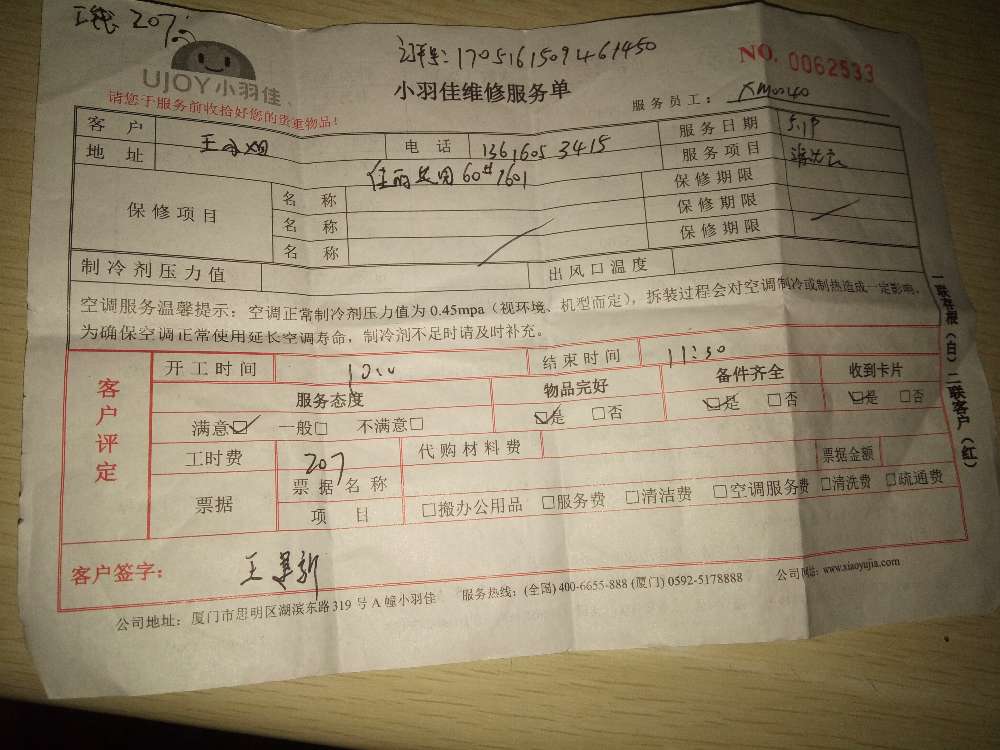 207
订单号: 1705161509461450
NO. 0062533
UJOY小羽佳
小羽佳维修服务单
请您于服务前收拾好您的贵重物品!
服务员工:
客 户 王 电 话 1361605 3415 服务日期
地 址 60 1601 服务项目
保修项目 名 称 保修期限
名 称 保修期限
名 称 保修期限
制冷剂压力值 出风口温度
空调服务温馨提示: 空调正常制冷剂压力值为 0.45mpa (视环境、机型而定), 拆装过程会对空调制冷或制热造成一定影响,
为确保空调正常使用延长空调寿命, 制冷剂不足时请及时补充。
一联存根(白)二联客户(红)
客户评定
开工时间 结束时间 11:30
服务态度 物品完好 备件齐全 收到卡片
满意☑ 一般□ 不满意□ ☑是 □否 ☑是 □否 ☑是 □否
工时费 207 代购材料费
票据 票据名称 票据金额
项 目 □搬办公用品 □服务费 □清洁费 □空调服务费 □清洗费 □疏通费
客户签字: 王
公司地址: 厦门市思明区湖滨东路319号A幢小羽佳 服务热线: (全国) 400-6655-888 (厦门) 0592-5178888 公司网站: www.xiaoyujia.com